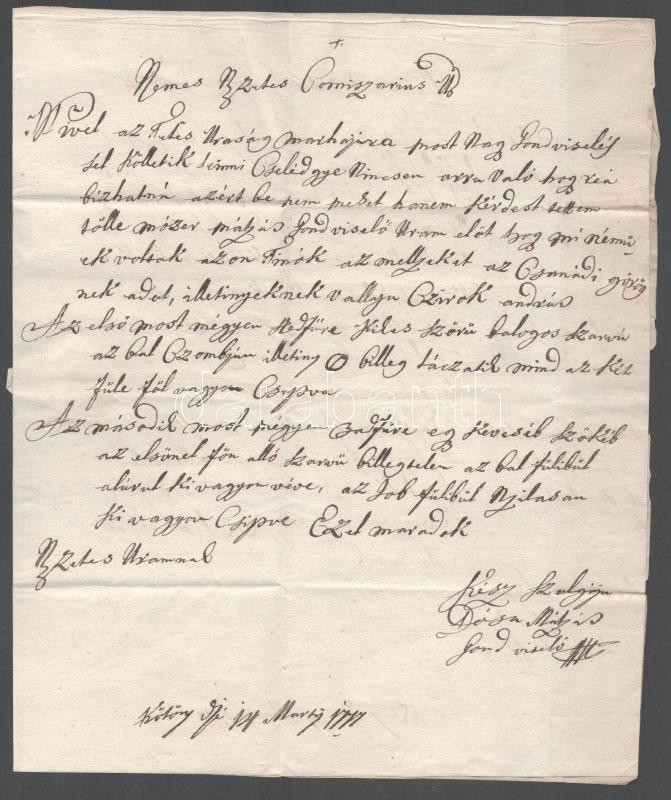 +
Nemes Nzetes Comiszarius Ur
Mivel az Tttes Uraság marhajira most Nag gondviselés
set kölletik tenni Cselédgye Nincsen arra való hog reá
bizhatná azért be nem mehet hanem kérdest tettem
tölle mózer mátyás gond viselö Uram elöt hog mi némü
ek voltak azon Tinók az mellyeket az Csanádi görög
nek adot, illetinyeknek vallya Czirok andrás
Az elsö most mégyen hedfüre kikes szörü balogos szarvú
az bal Czombján illetiny O billeg láczatik mind az két
füle föl vagyon Csipva
Az második most mégyen hadfüre eg keveséb szökéb
az elsönel fön alló szarvú billegtelen az bal fülibül
alúrul ki vagyon véve, az Job fülibül Nyilasan
ki vagyon Csipve Ezel maradok
Nzetes Uramnak
kész szolgája
Dósa Mátyás
gond viselö
die 14 Marty 1777
darabanth